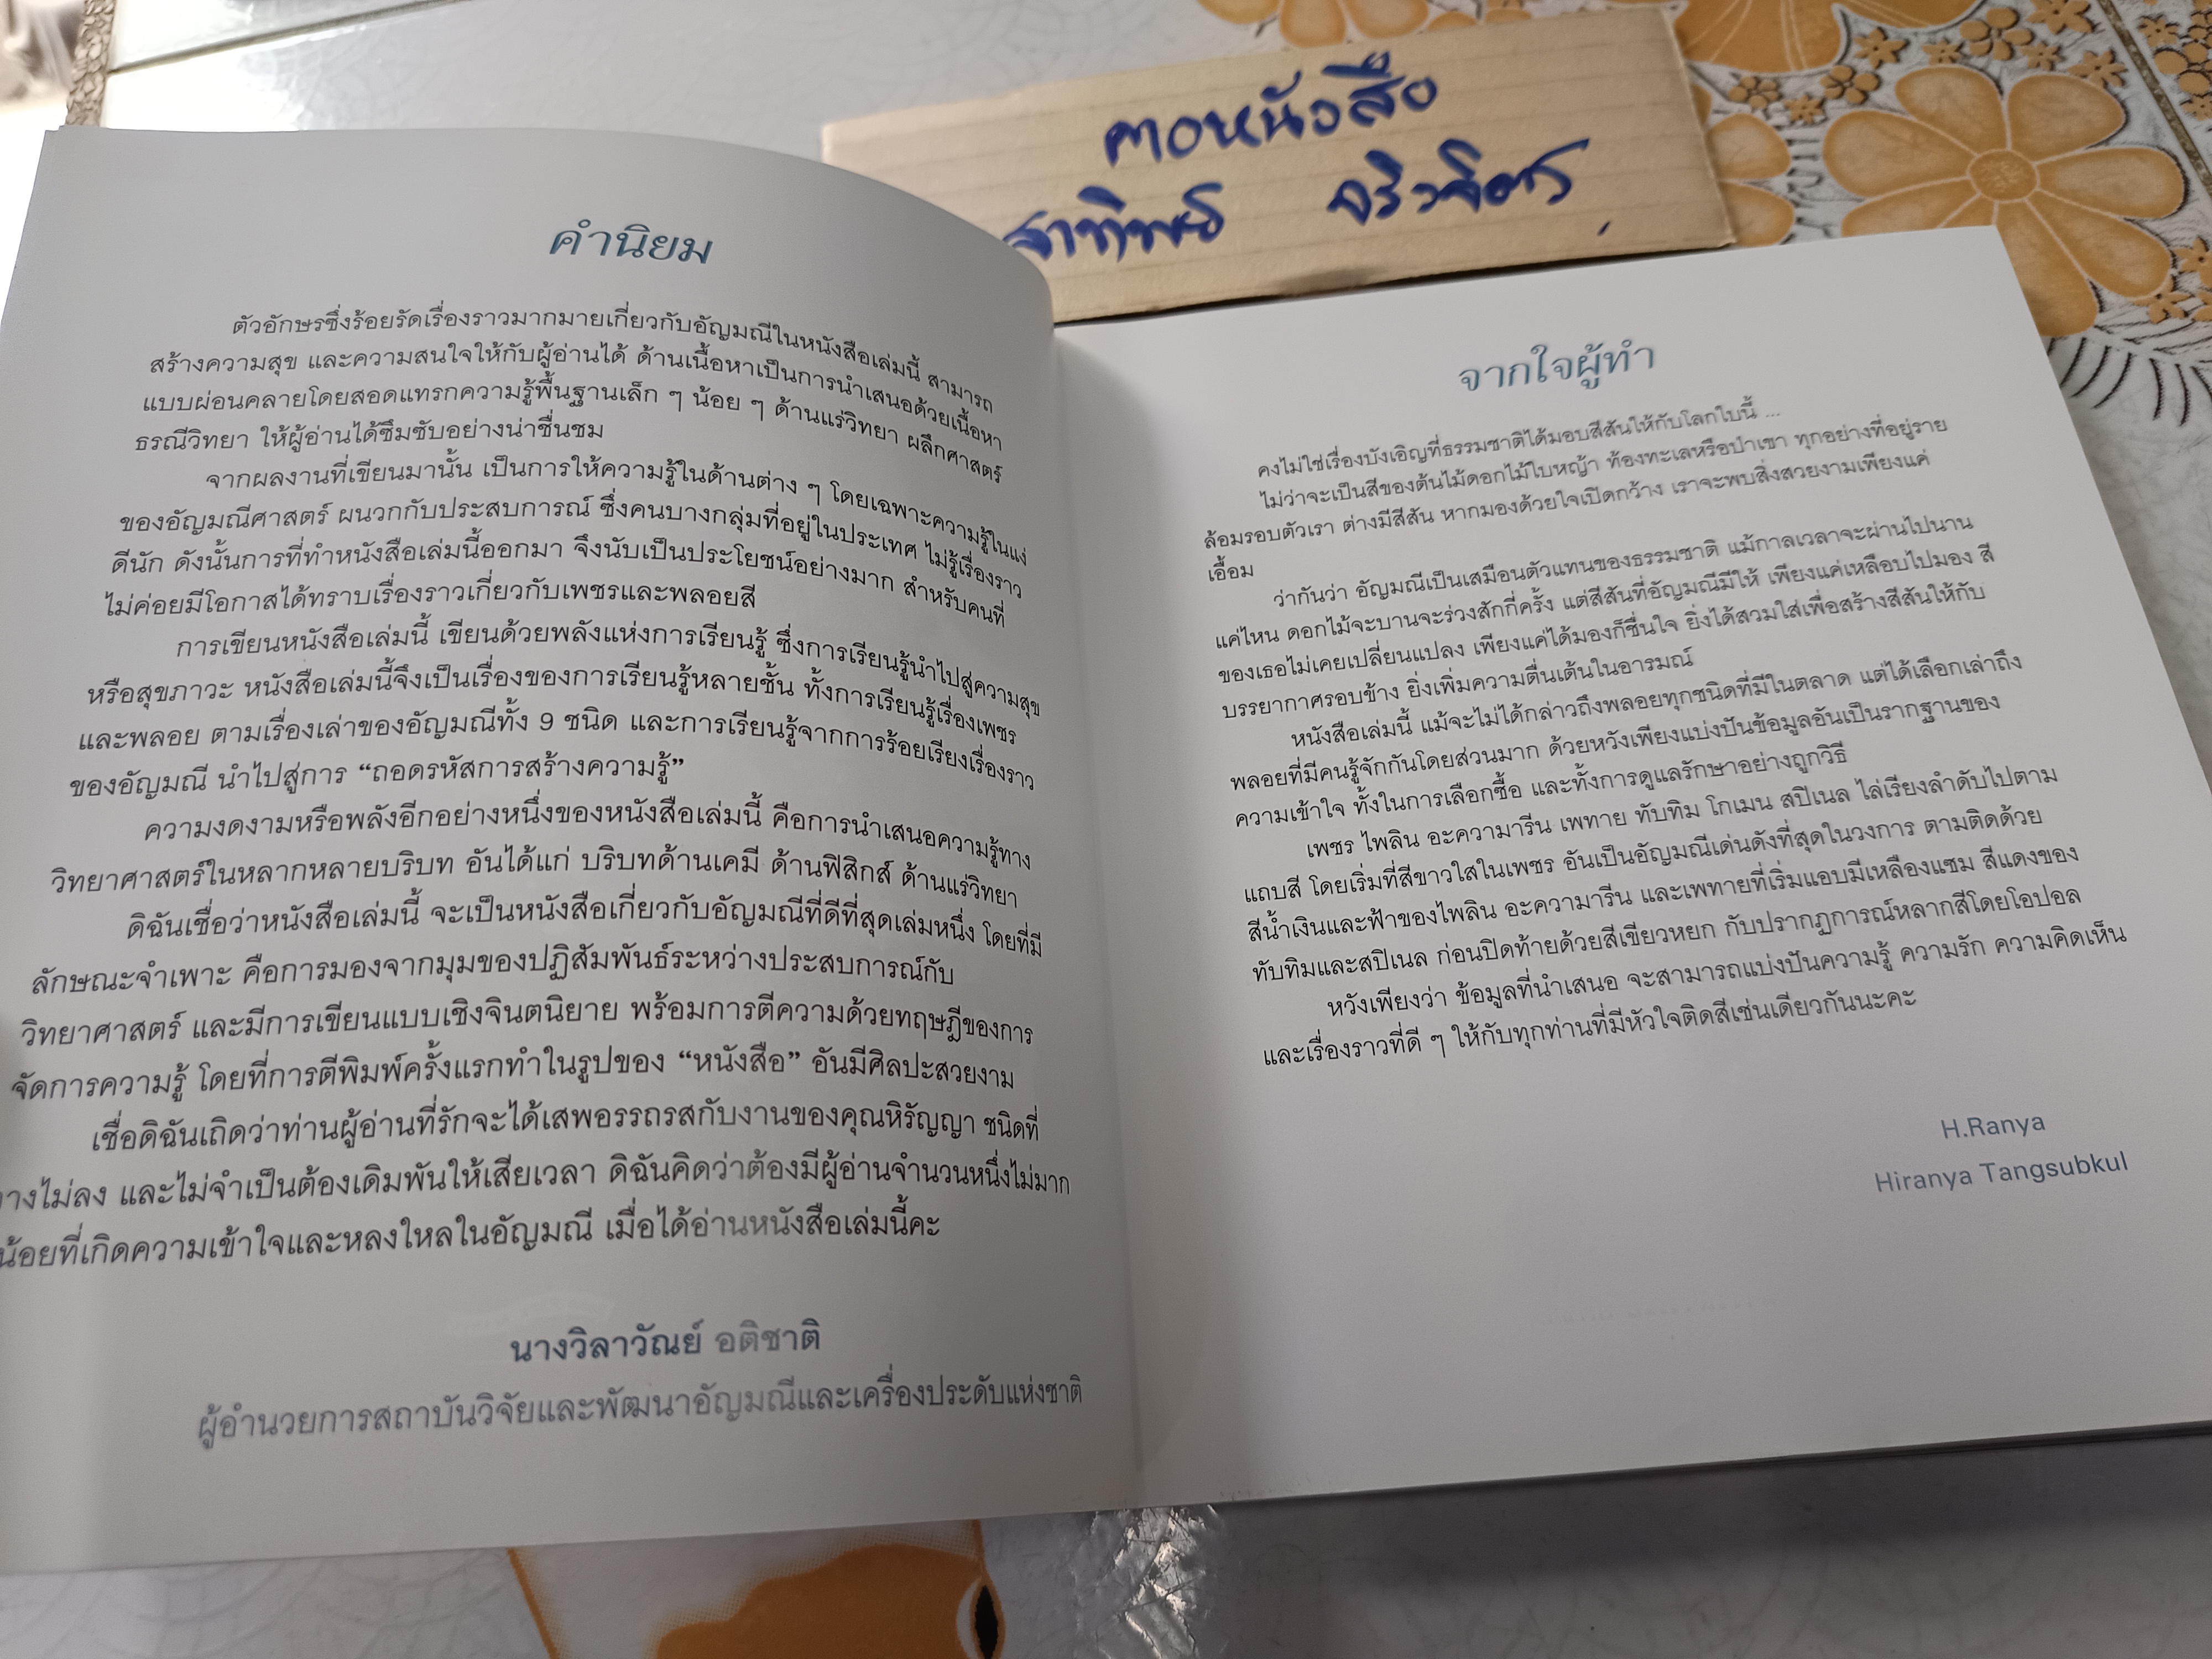 คอหนังสือ
คำนิยม
ตัวอักษรซึ่งร้อยรัดเรื่องราวมากมายเกี่ยวกับอัญมณีในหนังสือเล่มนี้ สามารถ
สร้างความสุข และความสนใจให้กับผู้อ่านได้ ด้านเนื้อหาเป็นการนำเสนอด้วยเนื้อหา
แบบผ่อนคลายโดยสอดแทรกความรู้พื้นฐานเล็ก ๆ น้อย ๆ ด้านแร่วิทยา ผลึกศาสตร์
ธรณีวิทยา ให้ผู้อ่านได้ซึมซับอย่างน่าชื่นชม
จากผลงานที่เขียนมานั้น เป็นการให้ความรู้ในด้านต่าง ๆ โดยเฉพาะความรู้ในแง่
ของอัญมณีศาสตร์ ผนวกกับประสบการณ์ ซึ่งคนบางกลุ่มที่อยู่ในประเทศ ไม่รู้เรื่องราว
ดีนัก ดังนั้นการที่ทำหนังสือเล่มนี้ออกมา จึงนับเป็นประโยชน์อย่างมาก สำหรับคนที่
ไม่ค่อยมีโอกาสได้ทราบเรื่องราวเกี่ยวกับเพชรและพลอยสี
การเขียนหนังสือเล่มนี้ เขียนด้วยพลังแห่งการเรียนรู้ ซึ่งการเรียนรู้นำไปสู่ความสุข
หรือสุขภาวะ หนังสือเล่มนี้จึงเป็นเรื่องของการเรียนรู้หลายชั้น ทั้งการเรียนรู้เรื่องเพชร
และพลอย ตามเรื่องเล่าของอัญมณีทั้ง 9 ชนิด และการเรียนรู้จากการร้อยเรียงเรื่องราว
ของอัญมณี นำไปสู่การ “ถอดรหัสการสร้างความรู้”
ความงดงามหรือพลังอีกอย่างหนึ่งของหนังสือเล่มนี้ คือการนำเสนอความรู้ทาง
วิทยาศาสตร์ในหลากหลายบริบท อันได้แก่ บริบทด้านเคมี ด้านฟิสิกส์ ด้านแร่วิทยา
ดิฉันเชื่อว่าหนังสือเล่มนี้ จะเป็นหนังสือเกี่ยวกับอัญมณีที่ดีที่สุดเล่มหนึ่ง โดยที่มี
ลักษณะจำเพาะ คือการมองจากมุมของปฏิสัมพันธ์ระหว่างประสบการณ์กับ
วิทยาศาสตร์ และมีการเขียนแบบเชิงจินตนิยาย พร้อมการตีความด้วยทฤษฎีของการ
จัดการความรู้ โดยที่การตีพิมพ์ครั้งแรกทำในรูปของ “หนังสือ” อันมีศิลปะสวยงาม
เชื่อดิฉันเถิดว่าท่านผู้อ่านที่รักจะได้เสพอรรถรสกับงานของคุณหิรัญญา ชนิดที่
วางไม่ลง และไม่จำเป็นต้องเดิมพันให้เสียเวลา ดิฉันคิดว่าต้องมีผู้อ่านจำนวนหนึ่งไม่มาก
น้อยที่เกิดความเข้าใจและหลงใหลในอัญมณี เมื่อได้อ่านหนังสือเล่มนี้คะ
นางวิลาวัณย์ อติชาติ
ผู้อำนวยการสถาบันวิจัยและพัฒนาอัญมณีและเครื่องประดับแห่งชาติ
จากใจผู้ทำ
คงไม่ใช่เรื่องบังเอิญที่ธรรมชาติได้มอบสีสันให้กับโลกใบนี้ ...
ไม่ว่าจะเป็นสีของต้นไม้ดอกไม้ใบหญ้า ท้องทะเลหรือป่าเขา ทุกอย่างที่อยู่ราย
ล้อมรอบตัวเรา ต่างมีสีสัน หากมองด้วยใจเปิดกว้าง เราจะพบสิ่งสวยงามเพียงแค่
เอื้อม
ว่ากันว่า อัญมณีเป็นเสมือนตัวแทนของธรรมชาติ แม้กาลเวลาจะผ่านไปนาน
แค่ไหน ดอกไม้จะบานจะร่วงสักกี่ครั้ง แต่สีสันที่อัญมณีมีให้ เพียงแค่เหลือบไปมอง สี
ของเธอไม่เคยเปลี่ยนแปลง เพียงแค่ได้มองก็ชื่นใจ ยิ่งได้สวมใส่เพื่อสร้างสีสันให้กับ
บรรยากาศรอบข้าง ยิ่งเพิ่มความตื่นเต้นในอารมณ์
หนังสือเล่มนี้ แม้จะไม่ได้กล่าวถึงพลอยทุกชนิดที่มีในตลาด แต่ได้เลือกเล่าถึง
พลอยที่มีคนรู้จักกันโดยส่วนมาก ด้วยหวังเพียงแบ่งปันข้อมูลอันเป็นรากฐานของ
ความเข้าใจ ทั้งในการเลือกซื้อ และทั้งการดูแลรักษาอย่างถูกวิธี
เพชร ไพลิน อะความารีน เพทาย ทับทิม โกเมน สปิเนล ไล่เรียงลำดับไปตาม
แถบสี โดยเริ่มที่สีขาวใสในเพชร อันเป็นอัญมณีเด่นดังที่สุดในวงการ ตามติดด้วย
สีน้ำเงินและฟ้าของไพลิน อะความารีน และเพทายที่เริ่มแอบมีเหลืองแซม สีแดงของ
ทับทิมและสปิเนล ก่อนปิดท้ายด้วยสีเขียวหยก กับปรากฏการณ์หลากสีโดยโอปอล
หวังเพียงว่า ข้อมูลที่นำเสนอ จะสามารถแบ่งปันความรู้ ความรัก ความคิดเห็น
และเรื่องราวที่ดี ๆ ให้กับทุกท่านที่มีหัวใจติดสีเช่นเดียวกันนะคะ
H.Ranya
Hiranya Tangsubkul